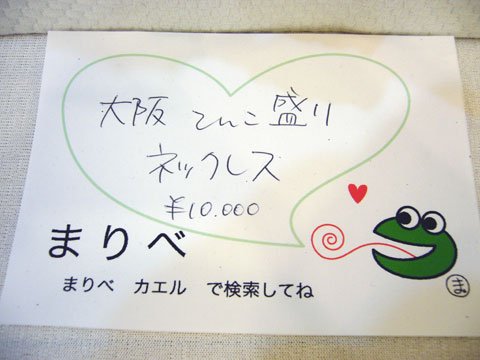 大阪 てんこ盛り
ネックレス
¥10.000
まりべ
まりべ カエル で検索してね
ま